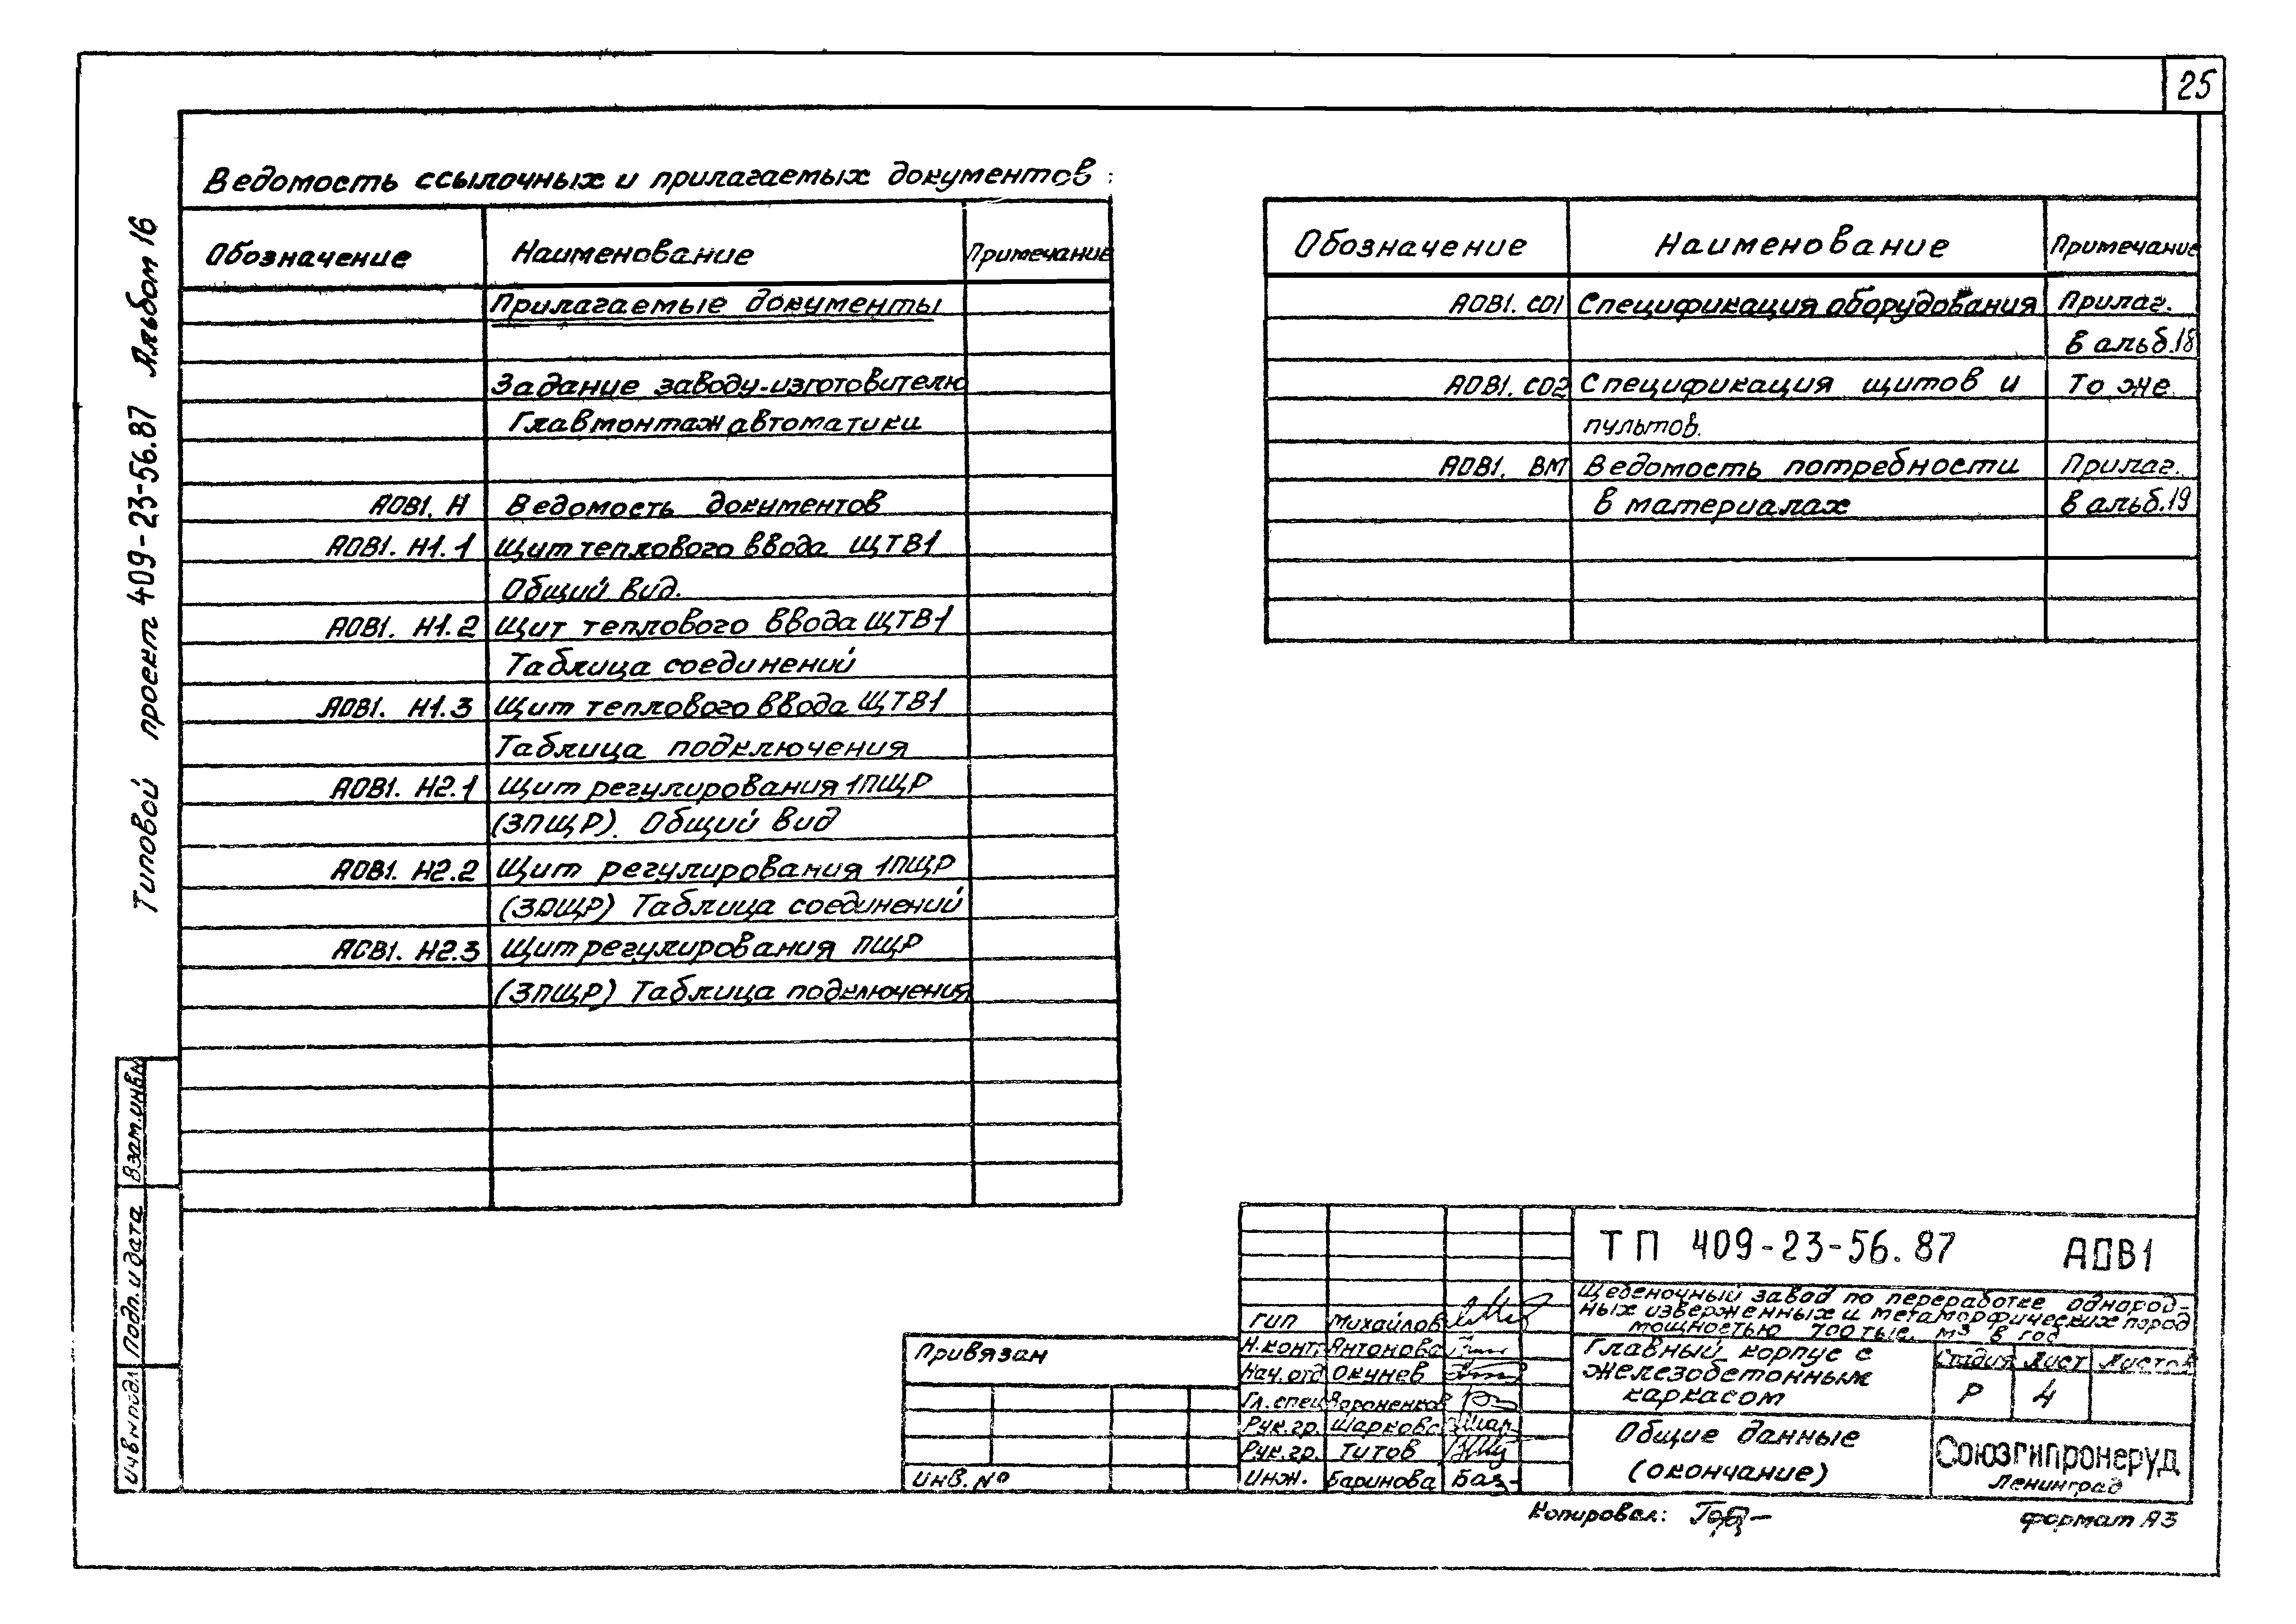 25
Ведомость ссылочных и прилагаемых документов
Обозначение Наименование Примечание
Прилагаемые документы
Задание заводу-изготовителю
Главмонтажавтоматики
АОВ1. Н Ведомость документов
АОВ1. Н1.1 Щит теплового ввода ЩТВ1
Общий вид.
АОВ1. Н1.2 Щит теплового ввода ЩТВ1
Таблица соединений
АОВ1. Н1.3 Щит теплового ввода ЩТВ1
Таблица подключения
АОВ1. Н2.1 Щит регулирования 1ПЩР
(3ПЩР). Общий вид
АОВ1. Н2.2 Щит регулирования 1ПЩР
(3ПЩР) Таблица соединений
АОВ1. Н2.3 Щит регулирования ПЩР
(3ПЩР) Таблица подключения
Обозначение Наименование Примечание
АОВ1. СО1 Спецификация оборудования Прилаг.
в альб.18
АОВ1. СО2 Спецификация щитов и То же
пультов.
АОВ1. ВМ Ведомость потребности Прилаг.
в материалах в альб.19
Типовой проект 409-23-56.87 Альбом 16
Взам.инв.№
Подп. и дата
Инв № подл
Привязан
Инв. №
ТП 409-23-56.87 АОВ1
Щебеночный завод по переработке однород-
ных изверженных и метаморфических пород
мощностью 700 тыс. м3 в год
ГИП Михайлов
Н.конт. Антонова
Нач.отд Окунев
Гл.спец Вороненков
Рук.гр. Шаркова
Рук.гр. Титов
Инж. Баринова
Главный корпус с
железобетонным
каркасом
Стадия Лист Листов
Р 4
Общие данные
(окончание)
Союзгипронеруд
Ленинград
Копировал:
формат А3